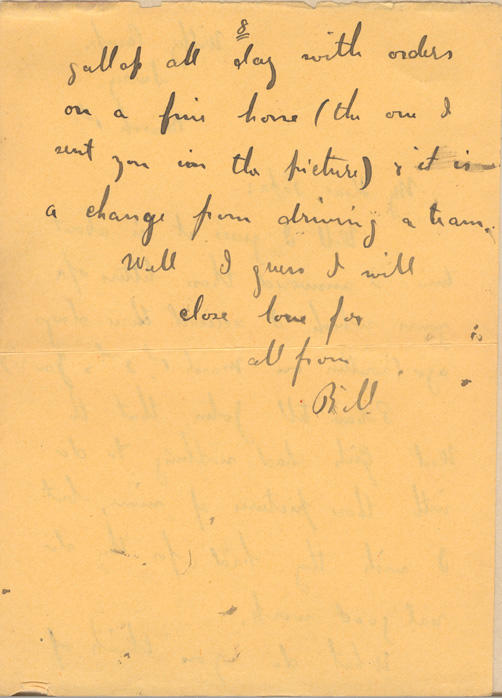 8
gallop all day with orders
on a fine horse (the one I
sent you in the picture) & it is
a change from driving a team.
Well I guess I will
close love for
all from
Bill